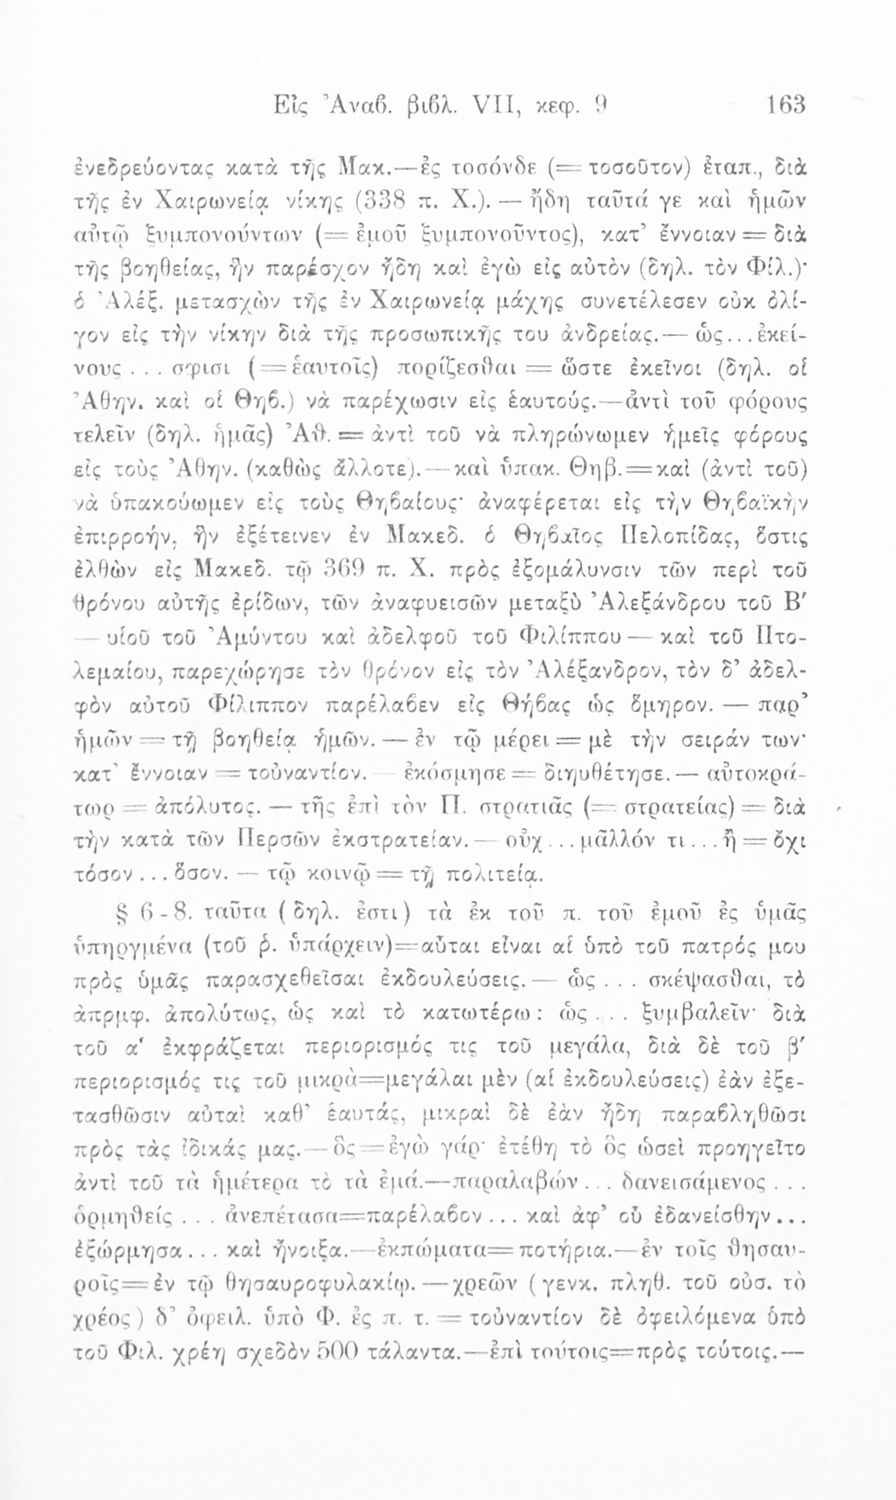 Εἰς Ἀναβ. βιβλ. VII, κεφ. 9 163
ἐνεδρεύοντας κατὰ τῆς Μακ.—ἐς τοσόνδε (= τοσοῦτον) ἐταπ., διὰ
τῆς ἐν Χαιρωνείᾳ νίκης (338 π. Χ.). — ἤδη ταῦτά γε καὶ ἡμῶν
αὐτῷ ξυμπονούντων (= ἐμοῦ ξυμπονοῦντος), κατ’ ἔννοιαν = διὰ
τῆς βοηθείας, ἣν παρέσχον ἤδη καὶ ἐγὼ εἰς αὐτὸν (δηλ. τὸν Φίλ.)·
ὁ Ἀλέξ. μετασχὼν τῆς ἐν Χαιρωνείᾳ μάχης συνετέλεσεν οὐκ ὀλί-
γον εἰς τὴν νίκην διὰ τῆς προσωπικῆς του ἀνδρείας.— ὡς...ἐκεί-
νους ... σφισι (=ἑαυτοῖς) πορίζεσθαι = ὥστε ἐκεῖνοι (δηλ. οἱ
Ἀθην. καὶ οἱ Θηβ.) νὰ παρέχωσιν εἰς ἑαυτούς.—ἀντὶ τοῦ φόρους
τελεῖν (δηλ. ἡμᾶς) Ἀθ. = ἀντὶ τοῦ νὰ πληρώνωμεν ἡμεῖς φόρους
εἰς τοὺς Ἀθην. (καθὼς ἄλλοτε).—καὶ ὑπακ. Θηβ.=καὶ (ἀντὶ τοῦ)
νὰ ὑπακούωμεν εἰς τοὺς Θηβαίους· ἀναφέρεται εἰς τὴν Θηβαϊκὴν
ἐπιρροήν, ἣν ἐξέτεινεν ἐν Μακεδ. ὁ Θηβαῖος Πελοπίδας, ὅστις
ἐλθὼν εἰς Μακεδ. τῷ 369 π. Χ. πρὸς ἐξομάλυνσιν τῶν περὶ τοῦ
θρόνου αὐτῆς ἐρίδων, τῶν ἀναφυεισῶν μεταξὺ Ἀλεξάνδρου τοῦ Β′
— υἱοῦ τοῦ Ἀμύντου καὶ ἀδελφοῦ τοῦ Φιλίππου — καὶ τοῦ Πτο-
λεμαίου, παρεχώρησε τὸν θρόνον εἰς τὸν Ἀλέξανδρον, τὸν δ’ ἀδελ-
φὸν αὐτοῦ Φίλιππον παρέλαβεν εἰς Θήβας ὡς ὅμηρον. — παρ’
ἡμῶν = τῇ βοηθείᾳ ἡμῶν. — ἐν τῷ μέρει = μὲ τὴν σειράν των·
κατ’ ἔννοιαν = τοὐναντίον. ἐκόσμησε = διηυθέτησε.— αὐτοκρά-
τωρ = ἀπόλυτος. — τῆς ἐπὶ τὸν Π. στρατιᾶς (= στρατείας) = διὰ
τὴν κατὰ τῶν Περσῶν ἐκστρατείαν.— οὐχ ...μᾶλλόν τι ...ἢ = ὄχι
τόσον ... ὅσον. — τῷ κοινῷ = τῇ πολιτείᾳ.
§ 6-8. ταῦτα (δηλ. ἐστι) τὰ ἐκ τοῦ π. τοῦ ἐμοῦ ἐς ὑμᾶς
ὑπηργμένα (τοῦ ῥ. ὑπάρχειν)=αὗται εἶναι αἱ ὑπὸ τοῦ πατρός μου
πρὸς ὑμᾶς παρασχεθεῖσαι ἐκδουλεύσεις.— ὡς ... σκέψασθαι, τὸ
ἀπρμφ. ἀπολύτως, ὡς καὶ τὸ κατωτέρω: ὡς ... ξυμβαλεῖν· διὰ
τοῦ α′ ἐκφράζεται περιορισμός τις τοῦ μεγάλα, διὰ δὲ τοῦ β′
περιορισμός τις τοῦ μικρὰ=μεγάλαι μὲν (αἱ ἐκδουλεύσεις) ἐὰν ἐξε-
τασθῶσιν αὐταὶ καθ’ ἑαυτάς, μικραὶ δὲ ἐὰν ἤδη παραβληθῶσι
πρὸς τὰς ἰδικάς μας.—ὃς=ἐγὼ γάρ· ἐτέθη τὸ ὃς ὡσεὶ προηγεῖτο
ἀντὶ τοῦ τὰ ἡμέτερα τὸ τὰ ἐμά.—παραλαβὼν ... δανεισάμενος ...
ὁρμηθείς ... ἀνεπέτασα=παρέλαβον ... καὶ ἀφ’ οὗ ἐδανείσθην...
ἐξώρμησα... καὶ ἤνοιξα.—ἐκπώματα=ποτήρια.—ἐν τοῖς θησαυ-
ροῖς=ἐν τῷ θησαυροφυλακίῳ.—χρεῶν (γενκ. πληθ. τοῦ οὐσ. τὸ
χρέος) δ’ ὀφειλ. ὑπὸ Φ. ἐς π. τ. = τοὐναντίον δὲ ὀφειλόμενα ὑπὸ
τοῦ Φιλ. χρέη σχεδὸν 500 τάλαντα.—ἐπὶ τούτοις=πρὸς τούτοις.—